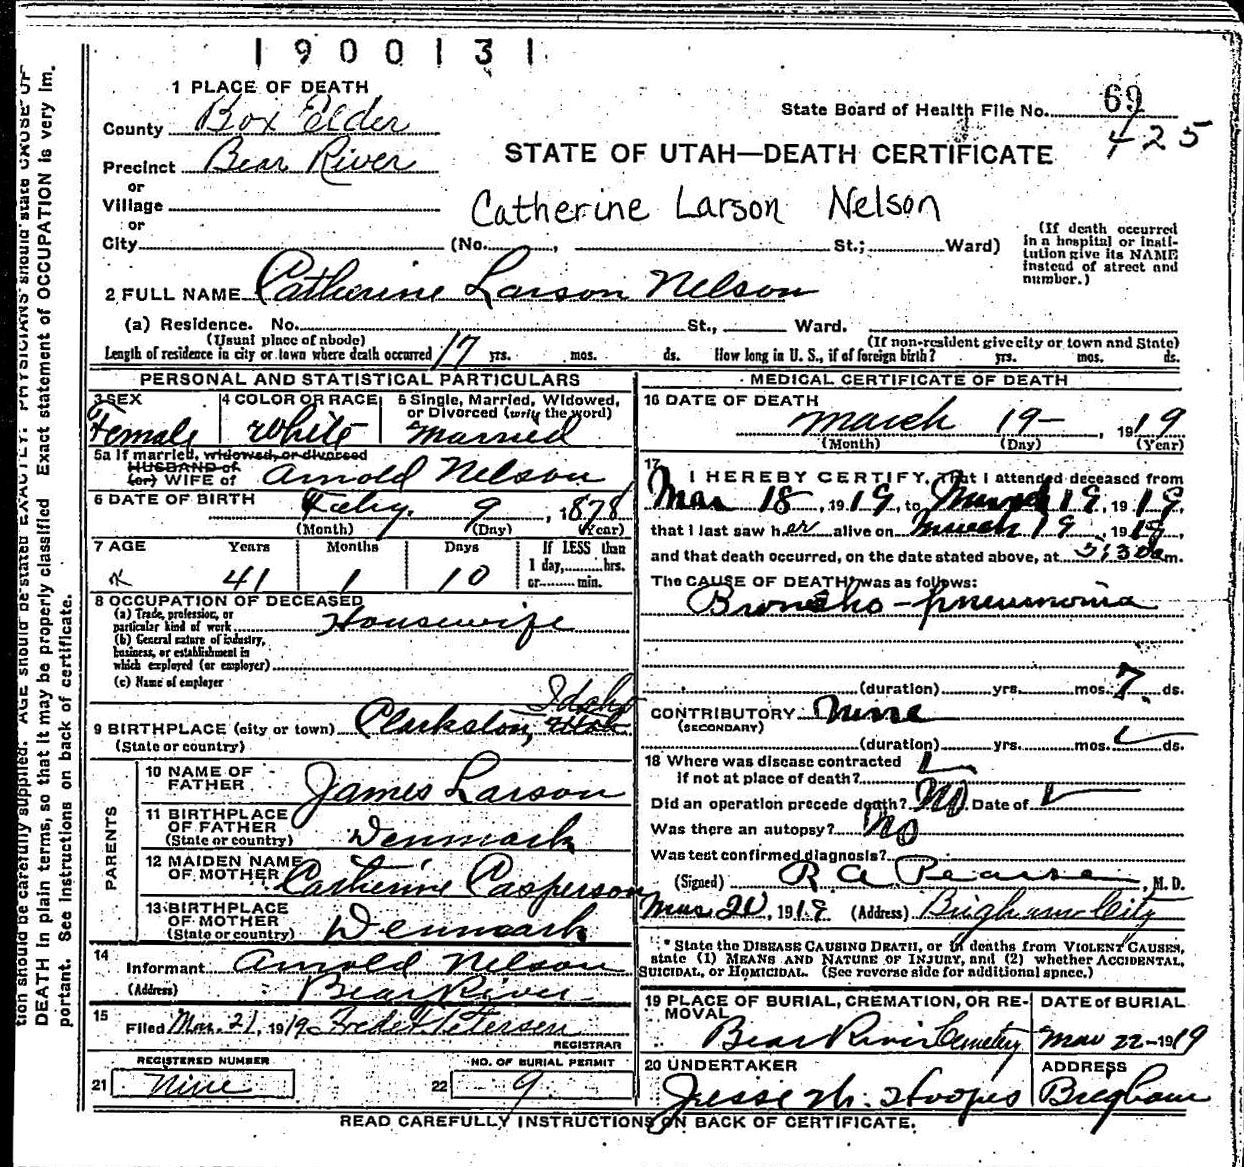 1900131
1 PLACE OF DEATH
State Board of Health File No. 69
County Box Elder
425
Precinct Bear River
STATE OF UTAH—DEATH CERTIFICATE
or
Village
Catherine Larson Nelson
or
City (No. , St.; Ward)
(If death occurred in a hospital or institution give its NAME instead of street and number.)
2 FULL NAME Catherine Larson Nelson
(a) Residence. No. St., Ward.
(Usual place of abode) (If non-resident give city or town and State)
Length of residence in city or town where death occurred 17 yrs. mos. ds. How long in U. S., if of foreign birth? yrs. mos. ds.
PERSONAL AND STATISTICAL PARTICULARS
3 SEX Female
4 COLOR OR RACE White
5 Single, Married, Widowed, or Divorced (write the word) Married
5a If married, widowed, or divorced
HUSBAND of
(or) WIFE of Arnold Nelson
6 DATE OF BIRTH Feby. 9, 1878
(Month) (Day) (Year)
7 AGE Years Months Days If LESS than
1 day, hrs.
41 1 10 or min.
8 OCCUPATION OF DECEASED
(a) Trade, profession, or
particular kind of work Housewife
(b) General nature of industry,
business, or establishment in
which employed (or employer)
(c) Name of employer
Idaho
9 BIRTHPLACE (city or town) Clarkston, Utah
(State or country)
PARENTS
10 NAME OF
FATHER James Larson
11 BIRTHPLACE
OF FATHER
(State or country) Denmark
12 MAIDEN NAME
OF MOTHER Catherine Casperson
13 BIRTHPLACE
OF MOTHER
(State or country) Denmark
14
Informant Arnold Nelson
(Address) Bear River
15
Filed Mar. 21, 1919 Petersen
REGISTRAR
REGISTERED NUMBER NO. OF BURIAL PERMIT
21 Nine 22 9
MEDICAL CERTIFICATE OF DEATH
16 DATE OF DEATH
March 19-, 1919
(Month) (Day) (Year)
17
I HEREBY CERTIFY, That I attended deceased from
Mar 18, 1919, to March 19, 1919,
that I last saw her alive on March 19, 1919,
and that death occurred, on the date stated above, at 5:30am.
The CAUSE OF DEATH* was as follows:
Broncho-pneumonia
(duration) yrs. mos. 7 ds.
CONTRIBUTORY None
(SECONDARY)
(duration) yrs. mos. ds.
18 Where was disease contracted
if not at place of death?
Did an operation precede death? No Date of
Was there an autopsy? No
Was test confirmed diagnosis?
(Signed) R A Pearse, M. D.
Mar 20, 1919 (Address) Brigham City
* State the DISEASE CAUSING DEATH, or in deaths from VIOLENT CAUSES,
state (1) MEANS AND NATURE OF INJURY, and (2) whether ACCIDENTAL,
SUICIDAL, or HOMICIDAL. (See reverse side for additional space.)
19 PLACE OF BURIAL, CREMATION, OR RE-
MOVAL
Bear River Cemetery
DATE of BURIAL
Mar 22-1919
20 UNDERTAKER
Jesse W. Hoopes
ADDRESS
Brigham
READ CAREFULLY INSTRUCTIONS ON BACK OF CERTIFICATE.
tion should be carefully supplied. AGE should be stated EXACTLY. PHYSICIANS should state CAUSE OF
DEATH in plain terms, so that it may be properly classified Exact statement of OCCUPATION is very im-
portant. See instructions on back of certificate.